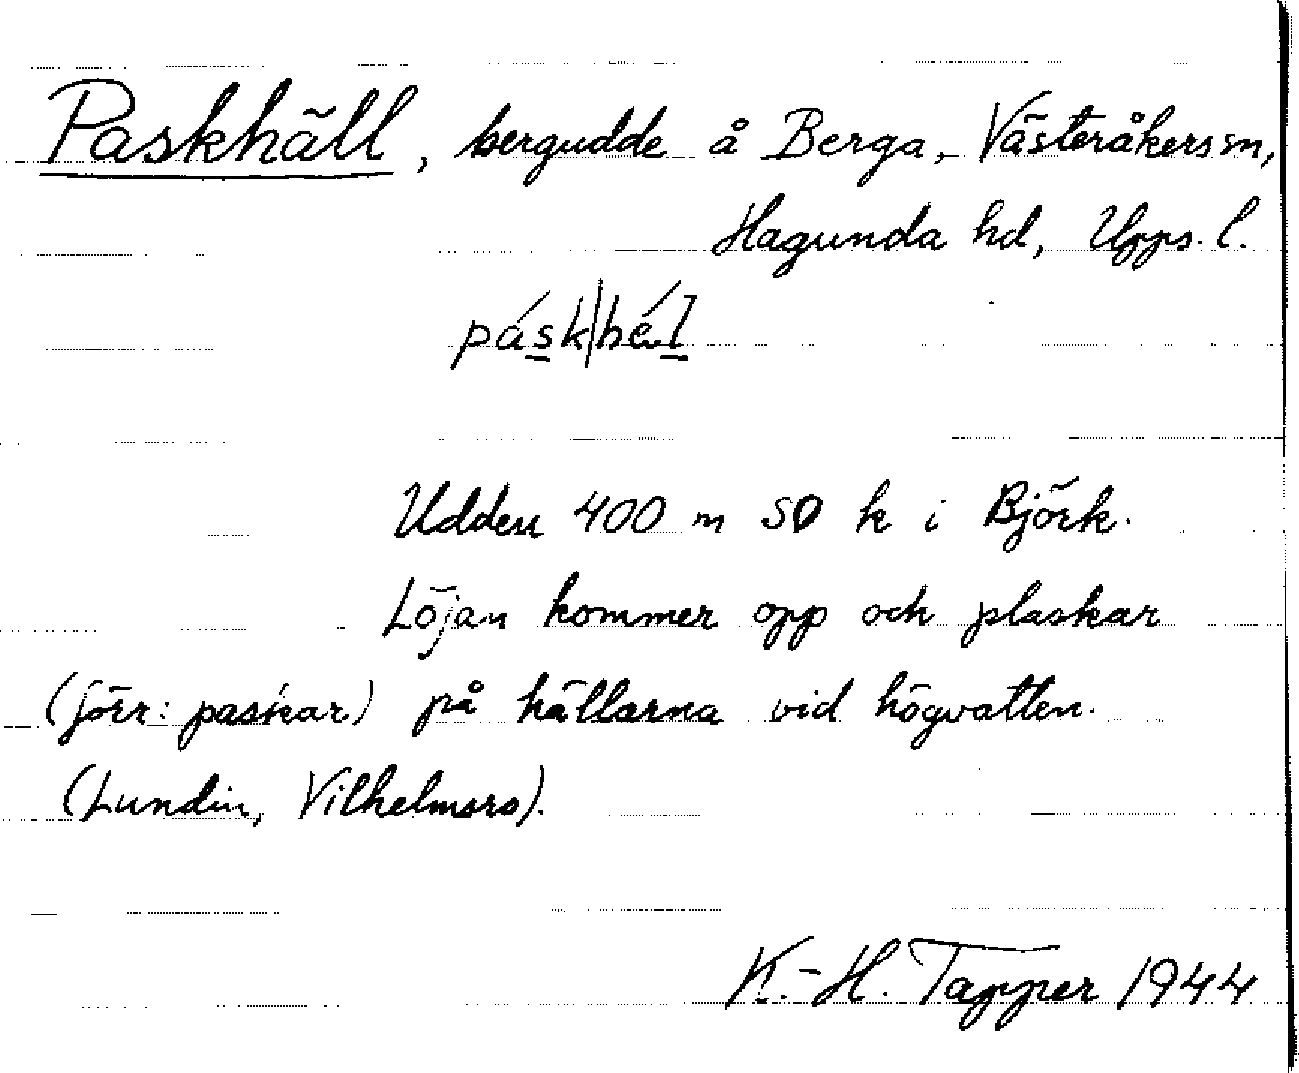 Paskhäll, bergudde å Berga, Västeråkers sn,
Hagunda hd, Upps. l.
pásk|hél
Udden 400 m SO k i Björk.
Löjan kommer opp och plaskar
(förr: paskar) på hällarna vid högvatten.
(Lundin, Vilhelmsro).
K.-H. Tapper 1944